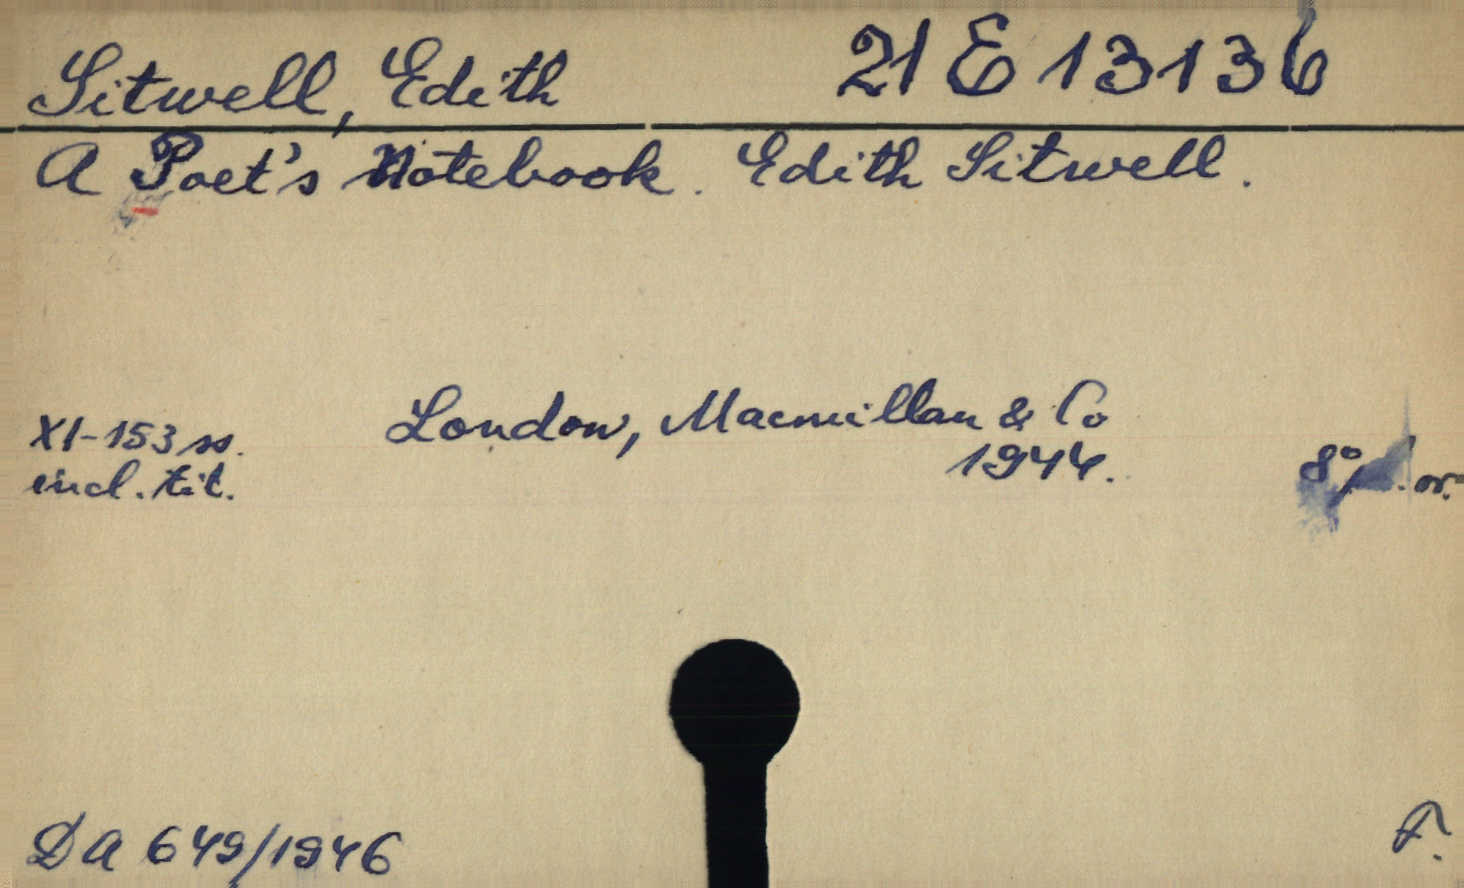 Sitwell, Edith 21 E 13136
A Poet's Notebook. Edith Sitwell.
XI-153 ss. London, Macmillan & Co
incl. tit. 1944. 8° or.
DA 649/1946 F.